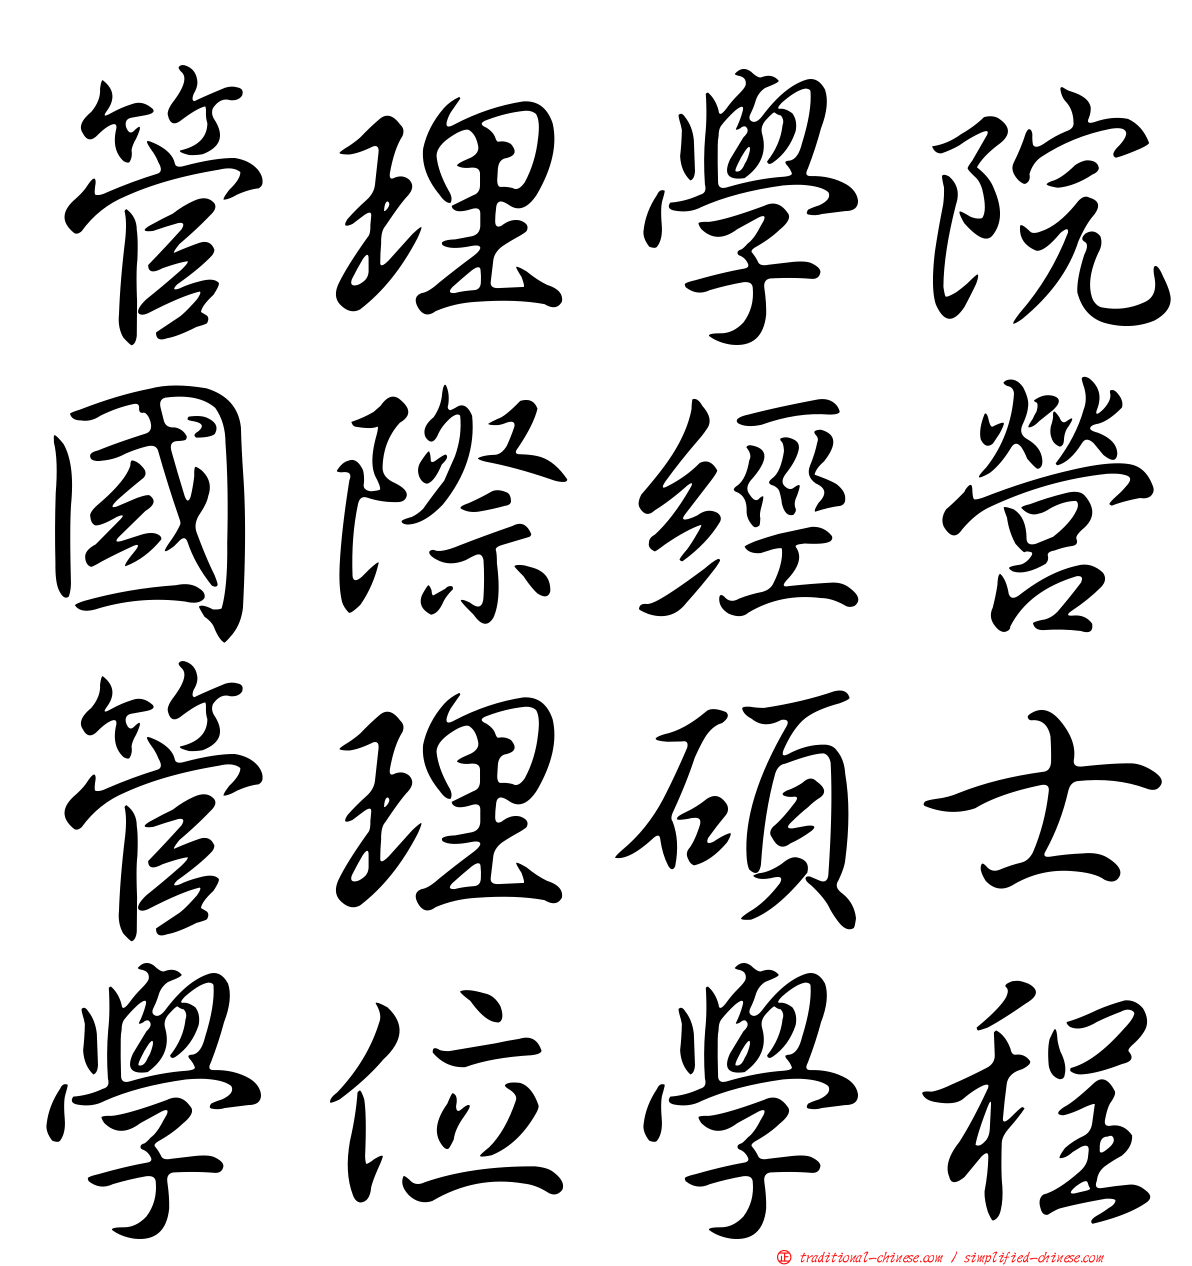 管理學院
國際經營
管理碩士
學位學程
正 traditional-chinese.com / simplified-chinese.com